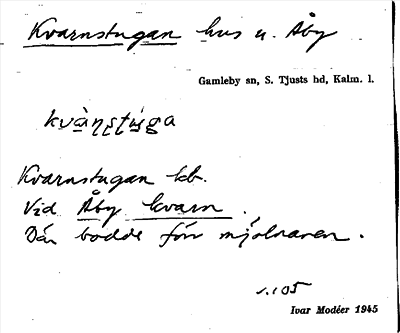 Kvarnstugan hus u. Åby
Gamleby sn, S. Tjusts hd, Kalm. l.
kvànstùga
Kvarnstugan lb.
Vid Åby kvarn.
Där bodde förr mjölnaren.
s. 105
Ivar Modéer 1945